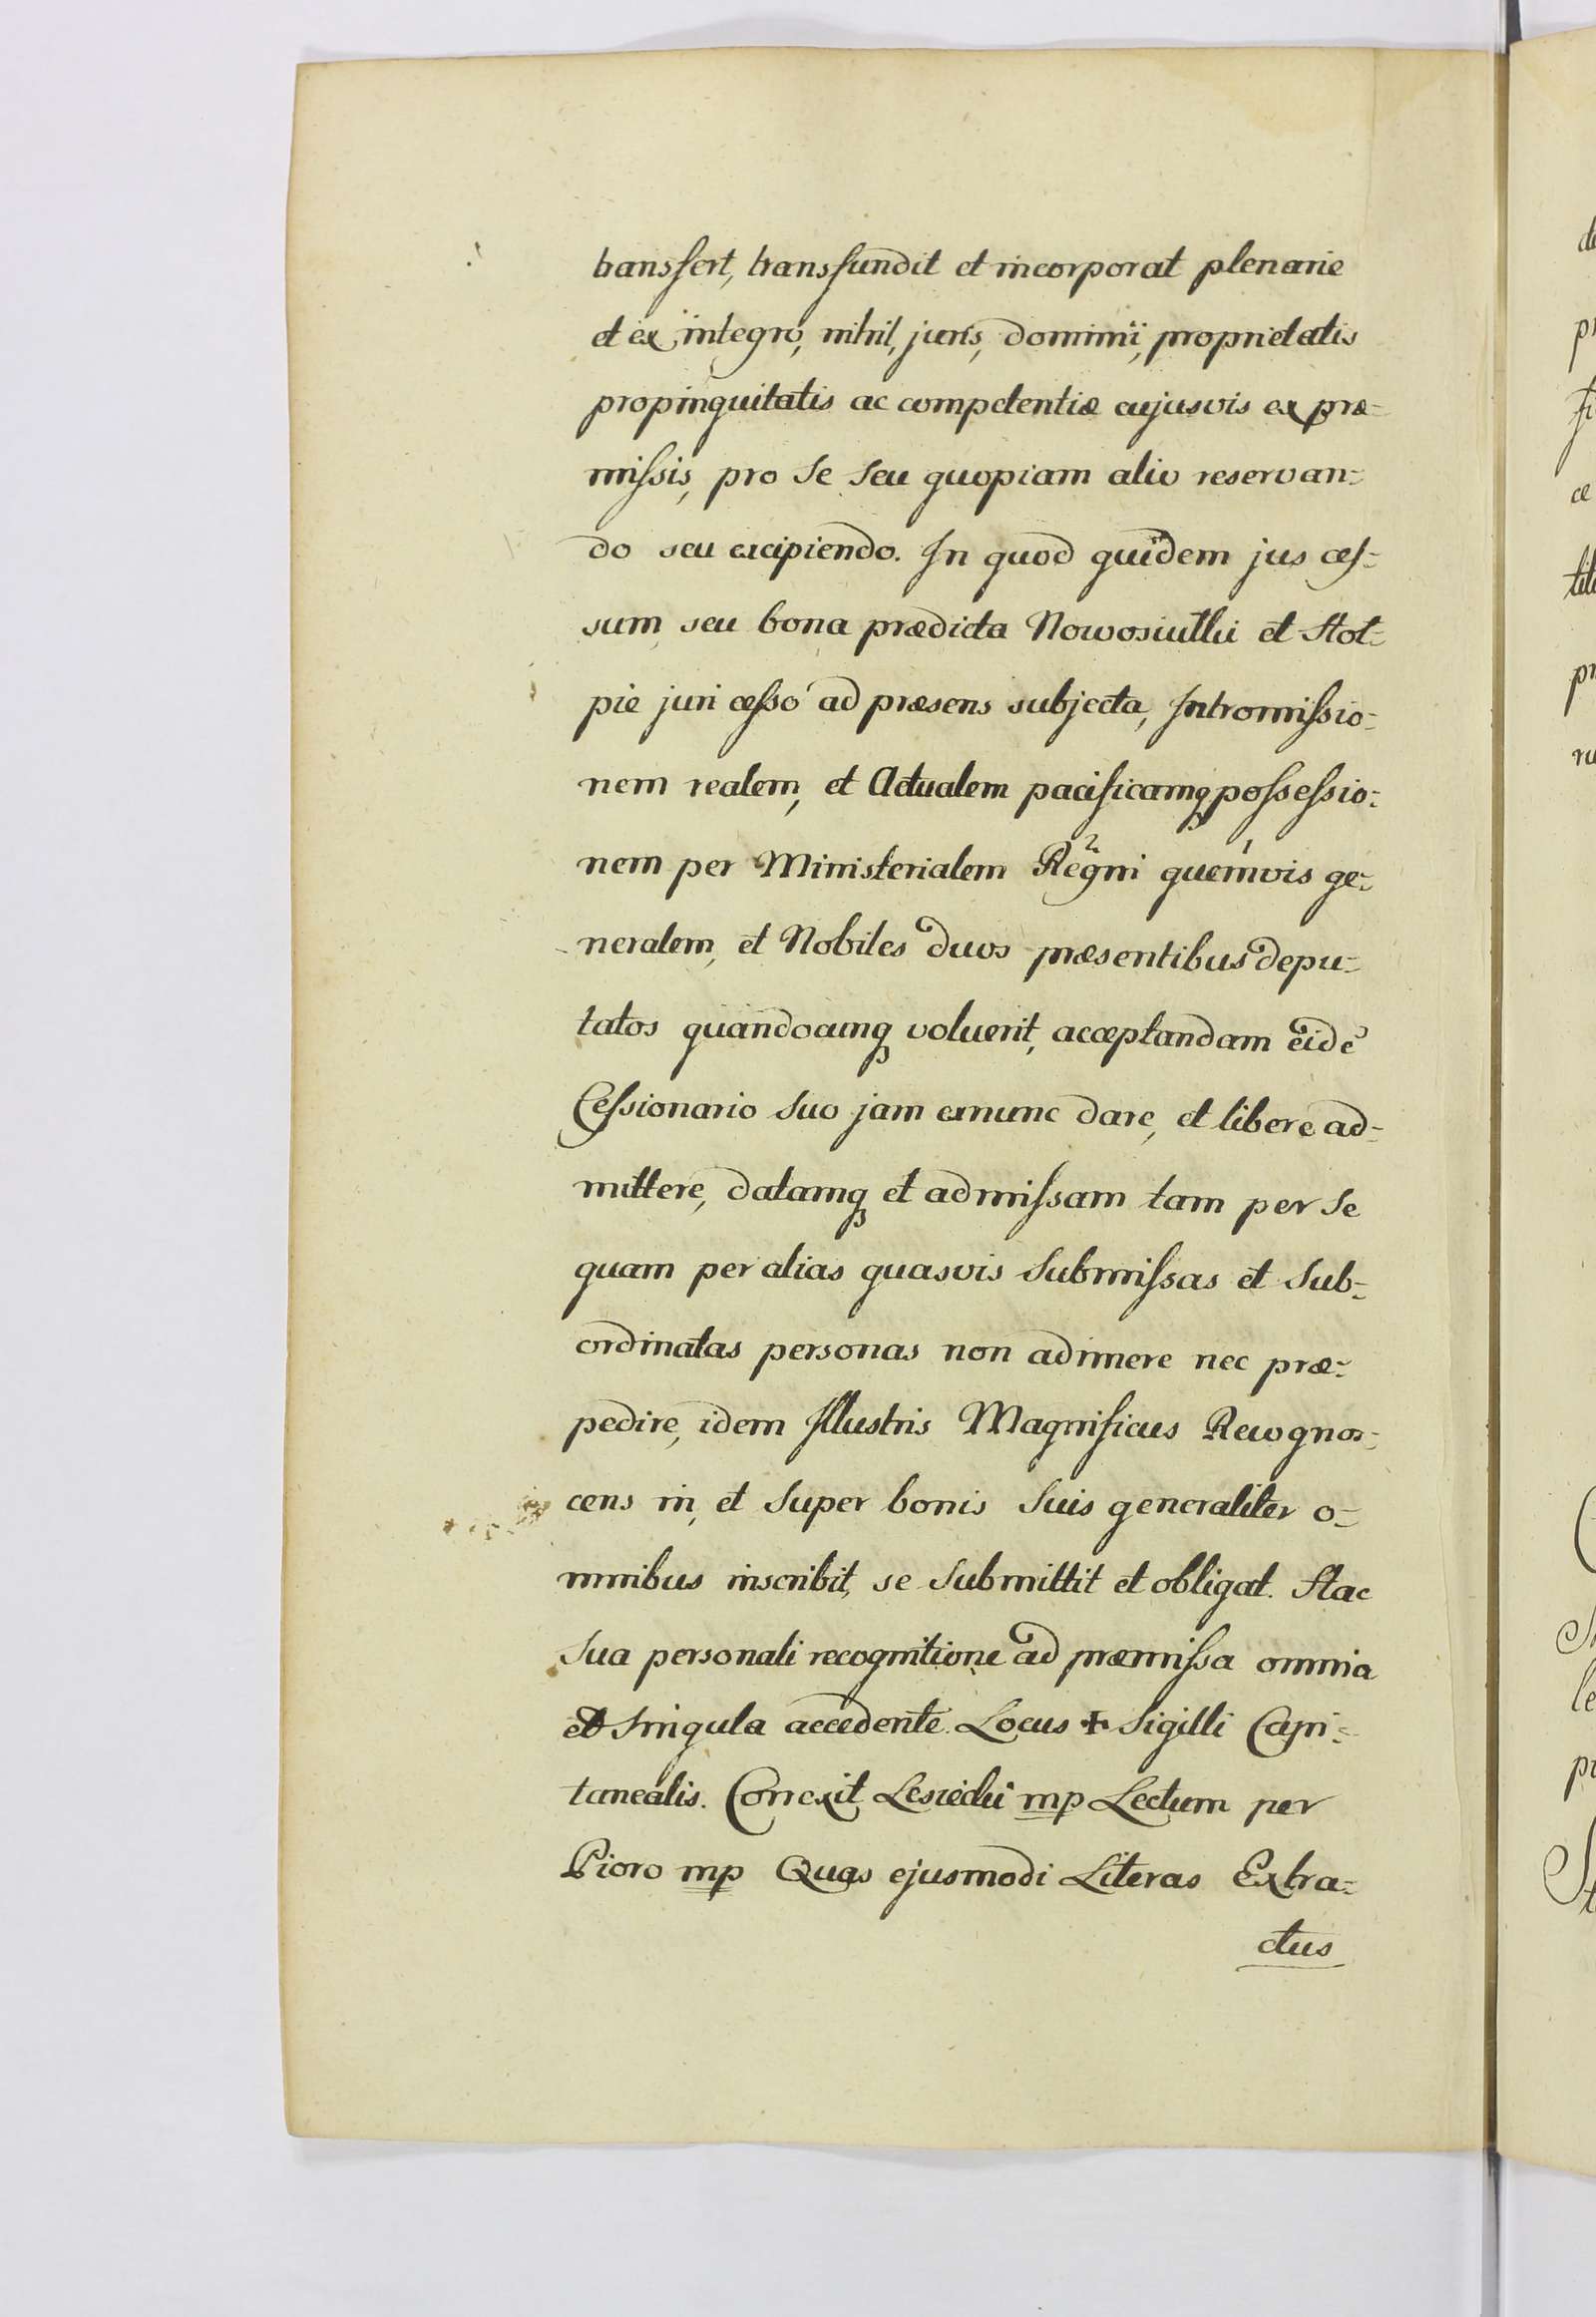 transfert, transfundit et incorporat plenarie
et ex integro, nihil, juris, dominii, proprietatis
propinquitatis ac competentiæ cujusvis ex præ=
miſsis, pro Se Seu quopiam alio reservan=
do seu excipiendo. In quod quidem jus ceſ=
sum seu bona prædicta Nowosiułki et Hoł=
pie juri ceſso ad præsens subjecta, Intromiſsio=
nem realem, et Actualem pacificamq₃ poſseſsio=
nem per Ministerialem Regni quemvis ge=
neralem, et Nobiles duos præsentibus depu=
tatos quandocunq₃ voluerit, acceptandam eidē
Ceſsionario Suo jam exnunc dare, et libere ad=
mittere, datamq₃ et admiſsam tam per Se
quam per alias quasvis Submiſsas et Sub=
ordinatas personas non adimere nec præ=
pedire, idem Illustris Magnificus Recognos=
cens in, et Super bonis Suis generaliter o=
mnibus inscribit, se Submittit et obligat. Hac
Sua personali recognitione ad præmiſsa omnia
et Singula accedente. Locus ✠ Sigilli Capi=
tanealis. Correxit Lesiecki mp Lectum per
Pioro mp Quas ejusmodi Literas Extra=
ctus